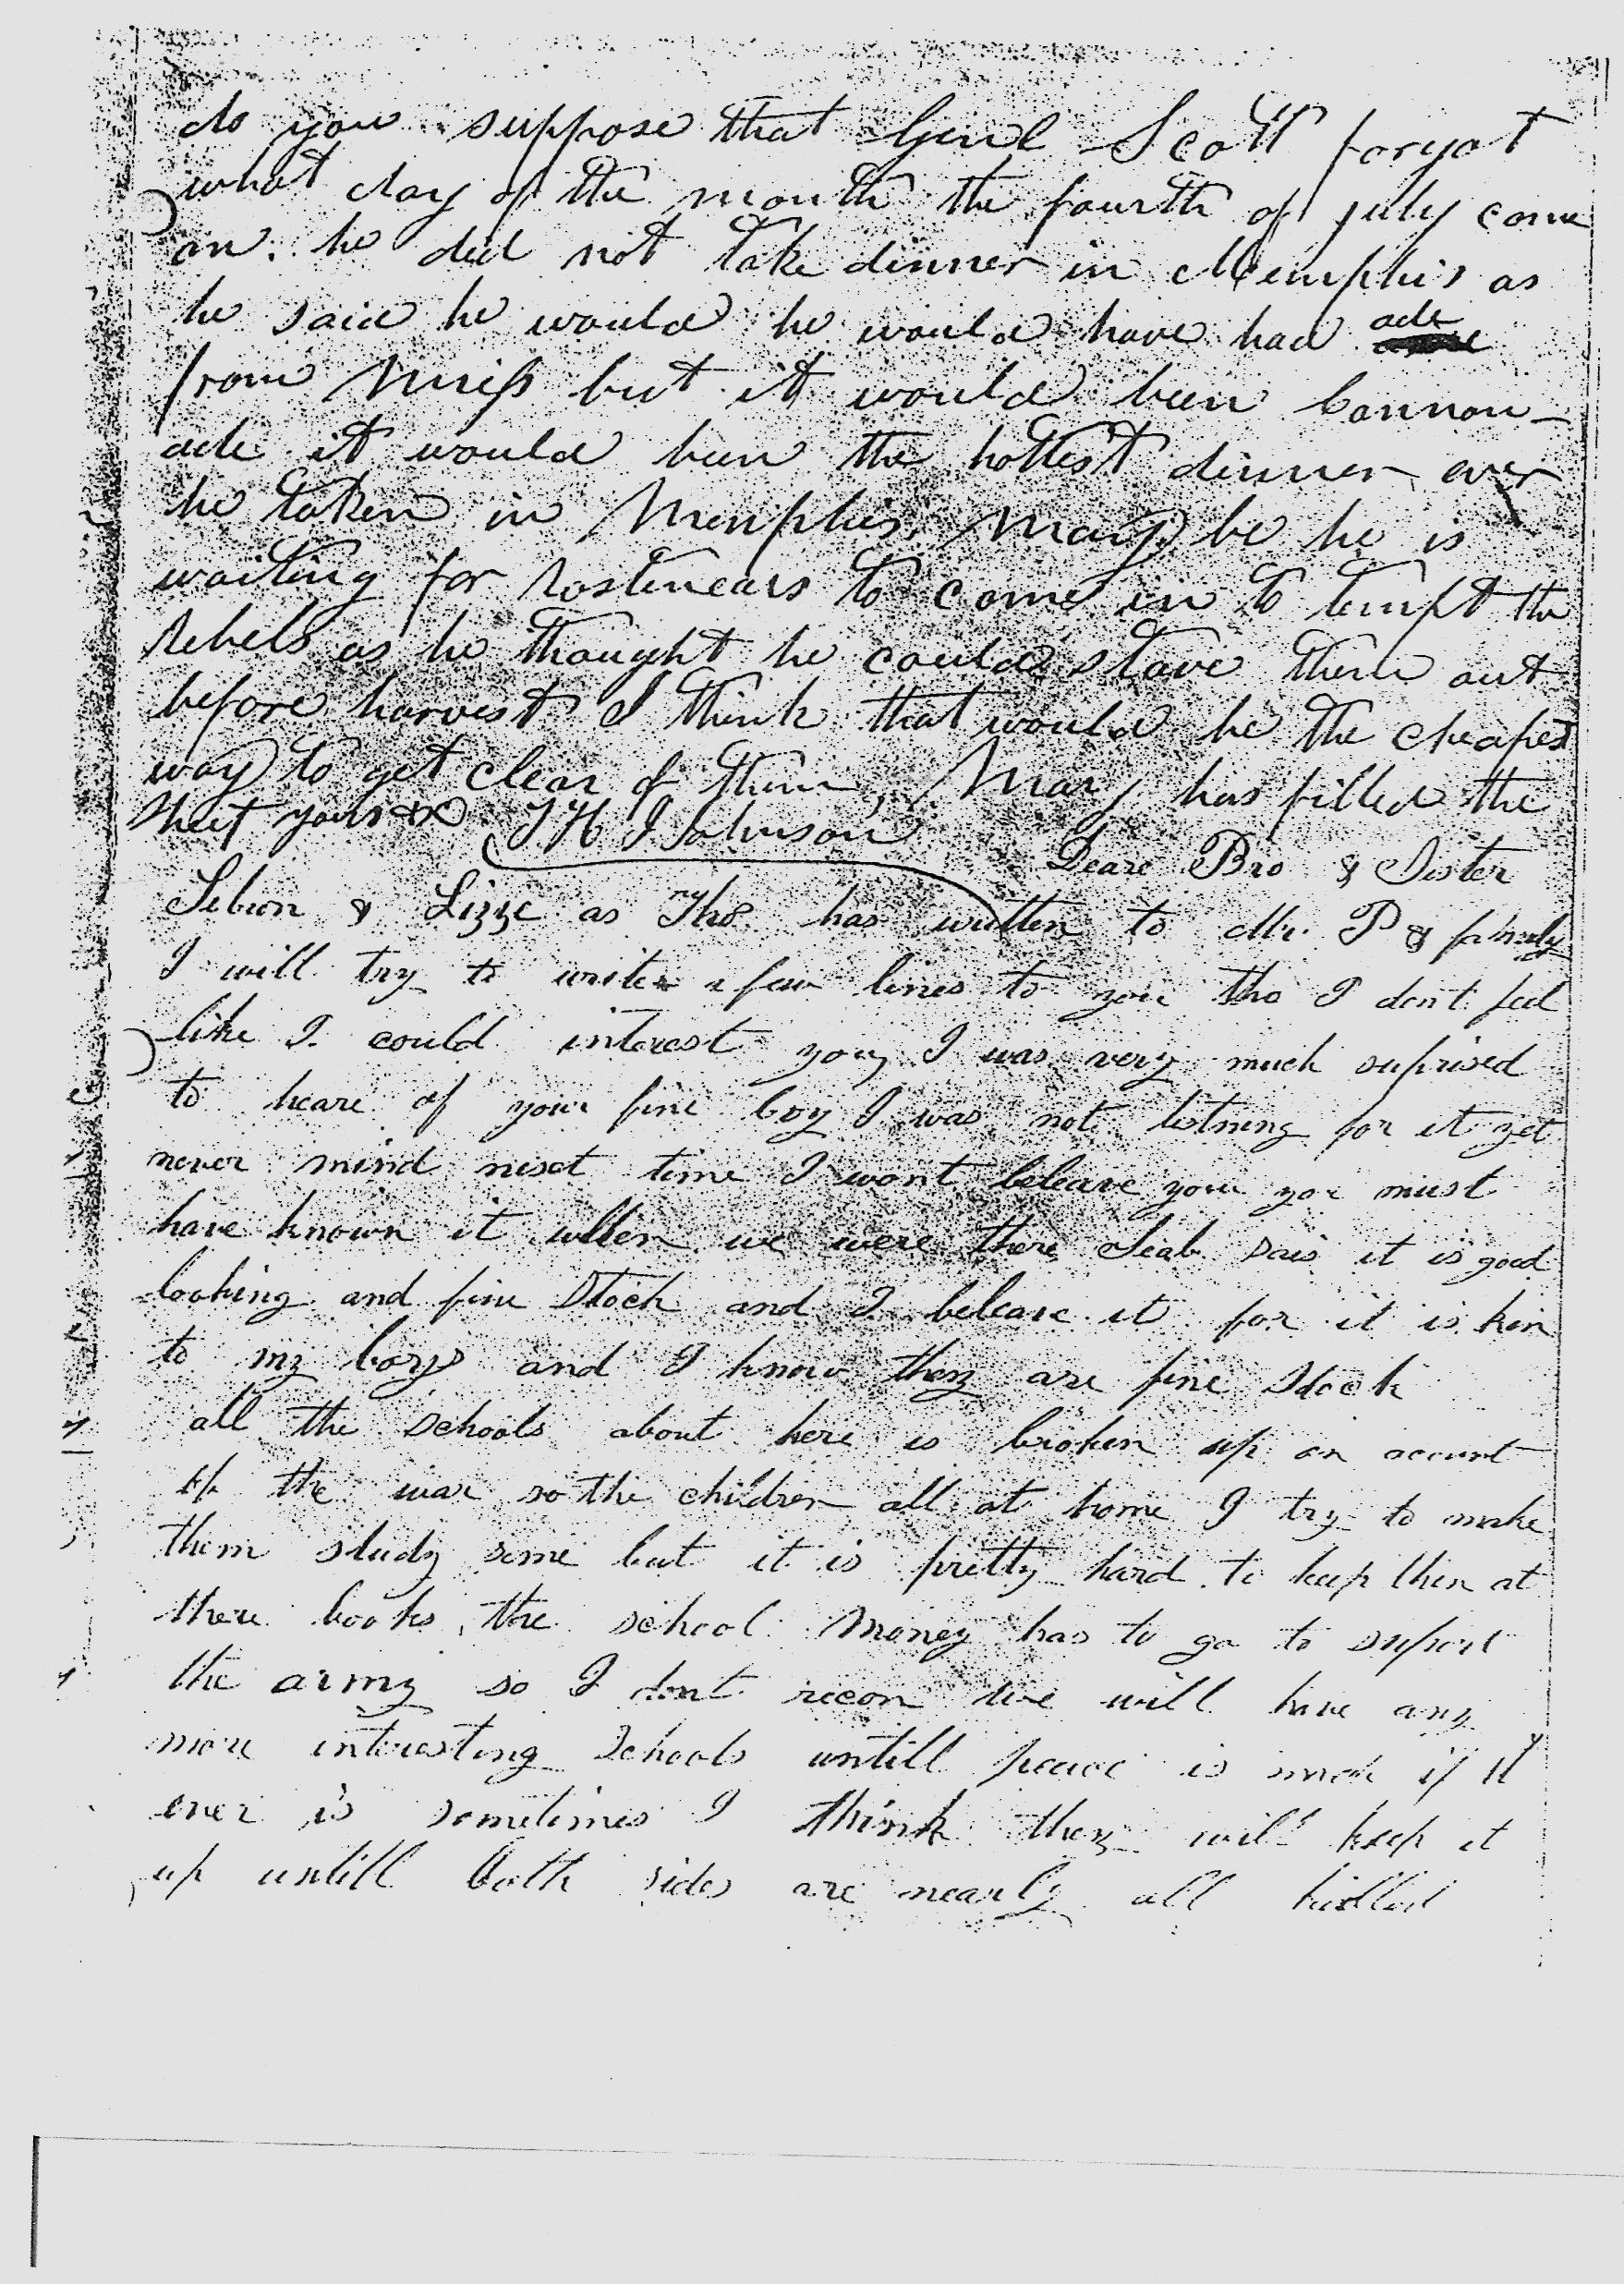 do you suppose that Genl Scott forgot
what day of the month the fourth of july come
on. he did not take dinner in Memphis as
he said he would he would have had ade
from Miss but it would been Cannon-
ade it would been the hottest dinner ever
he taken in Memphis. May be he is
waiting for rostenears to come in to tempt the
rebels as he thought he could starve them out
before harvest I think that would be the cheapest
way to get clear of them, Mary has filled the
sheet yours &c T H J Johnson
Deare Bro & Sister
Sebron & Lizze as Tho has written to Mr. P & famly
I will try to write a few lines to you tho I dont feel
like I could interest you, I was very much suprised
to heare of your fine boy I was not listning for it yet
never mind next time I wont beleave you you must
have known it when we were there Seab sais it is good
looking and fine Stock and I beleave it for it is kin
to my boys and I know they are fine Stock
all the Schools about here is broken up on account
of the war so the children all at home I try to make
them study some but it is pretty hard to keep them at
there books, the school Money has to go to suport
the army so I dont recon we will have any
more interesting Schools untill peace is made if it
ever is sometimes I think they will keep it
up untill both sides are nearly all killed